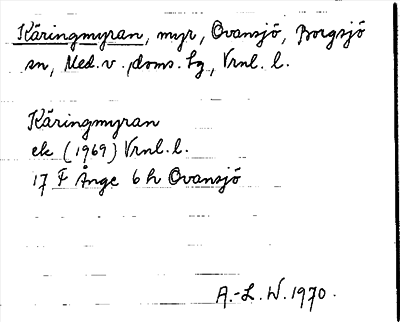 Käringmyran, myr, Ovansjö, Borgsjö
sn, Med. v. doms. hg, Vrnl. l.
Käringmyran
ek (1969) Vrnl. l.
17 F Ånge 6 h Ovansjö
A.-L. W. 1970.